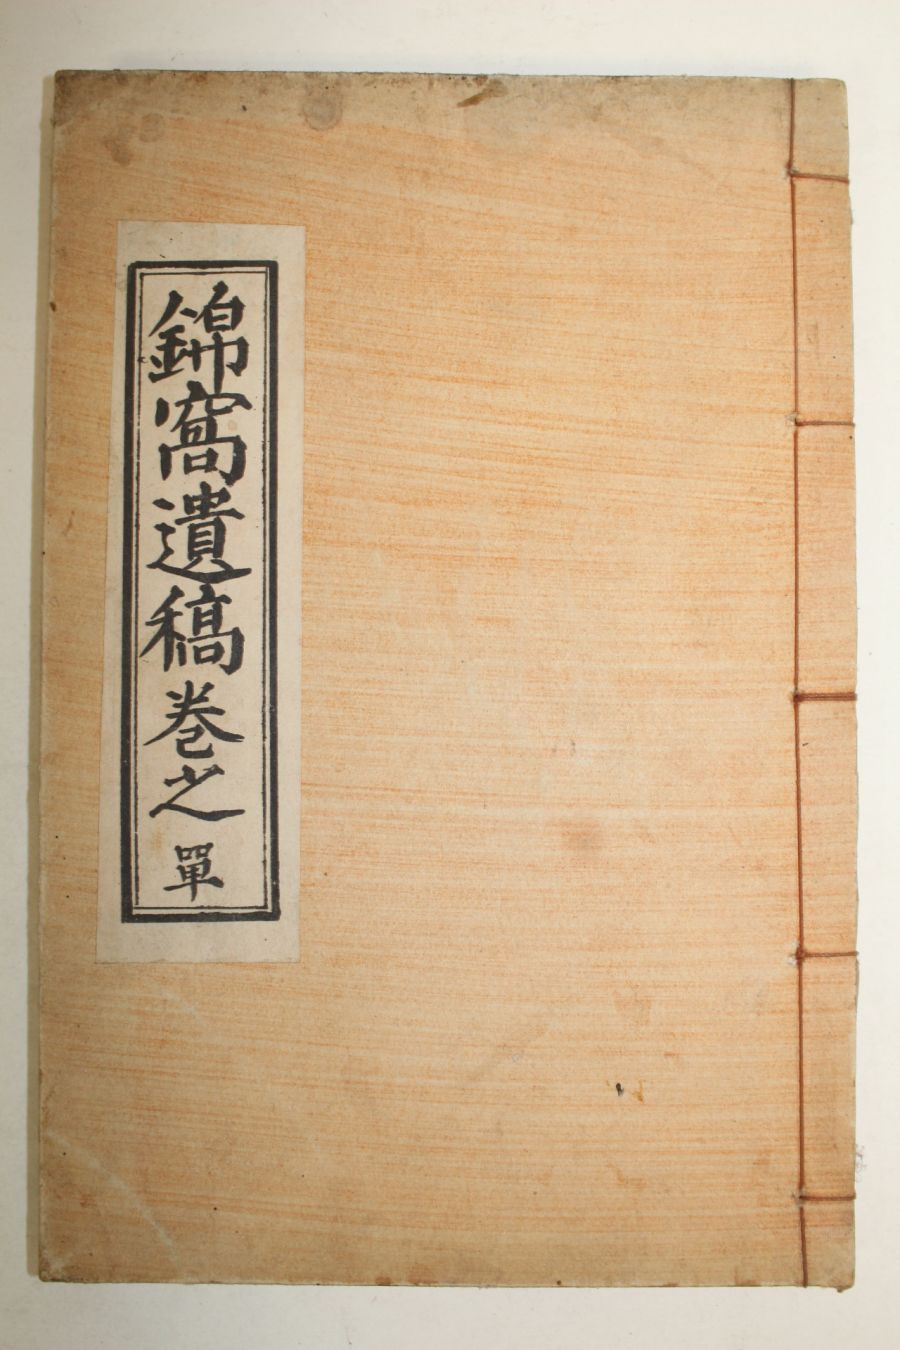 錦窩遺稿卷之單